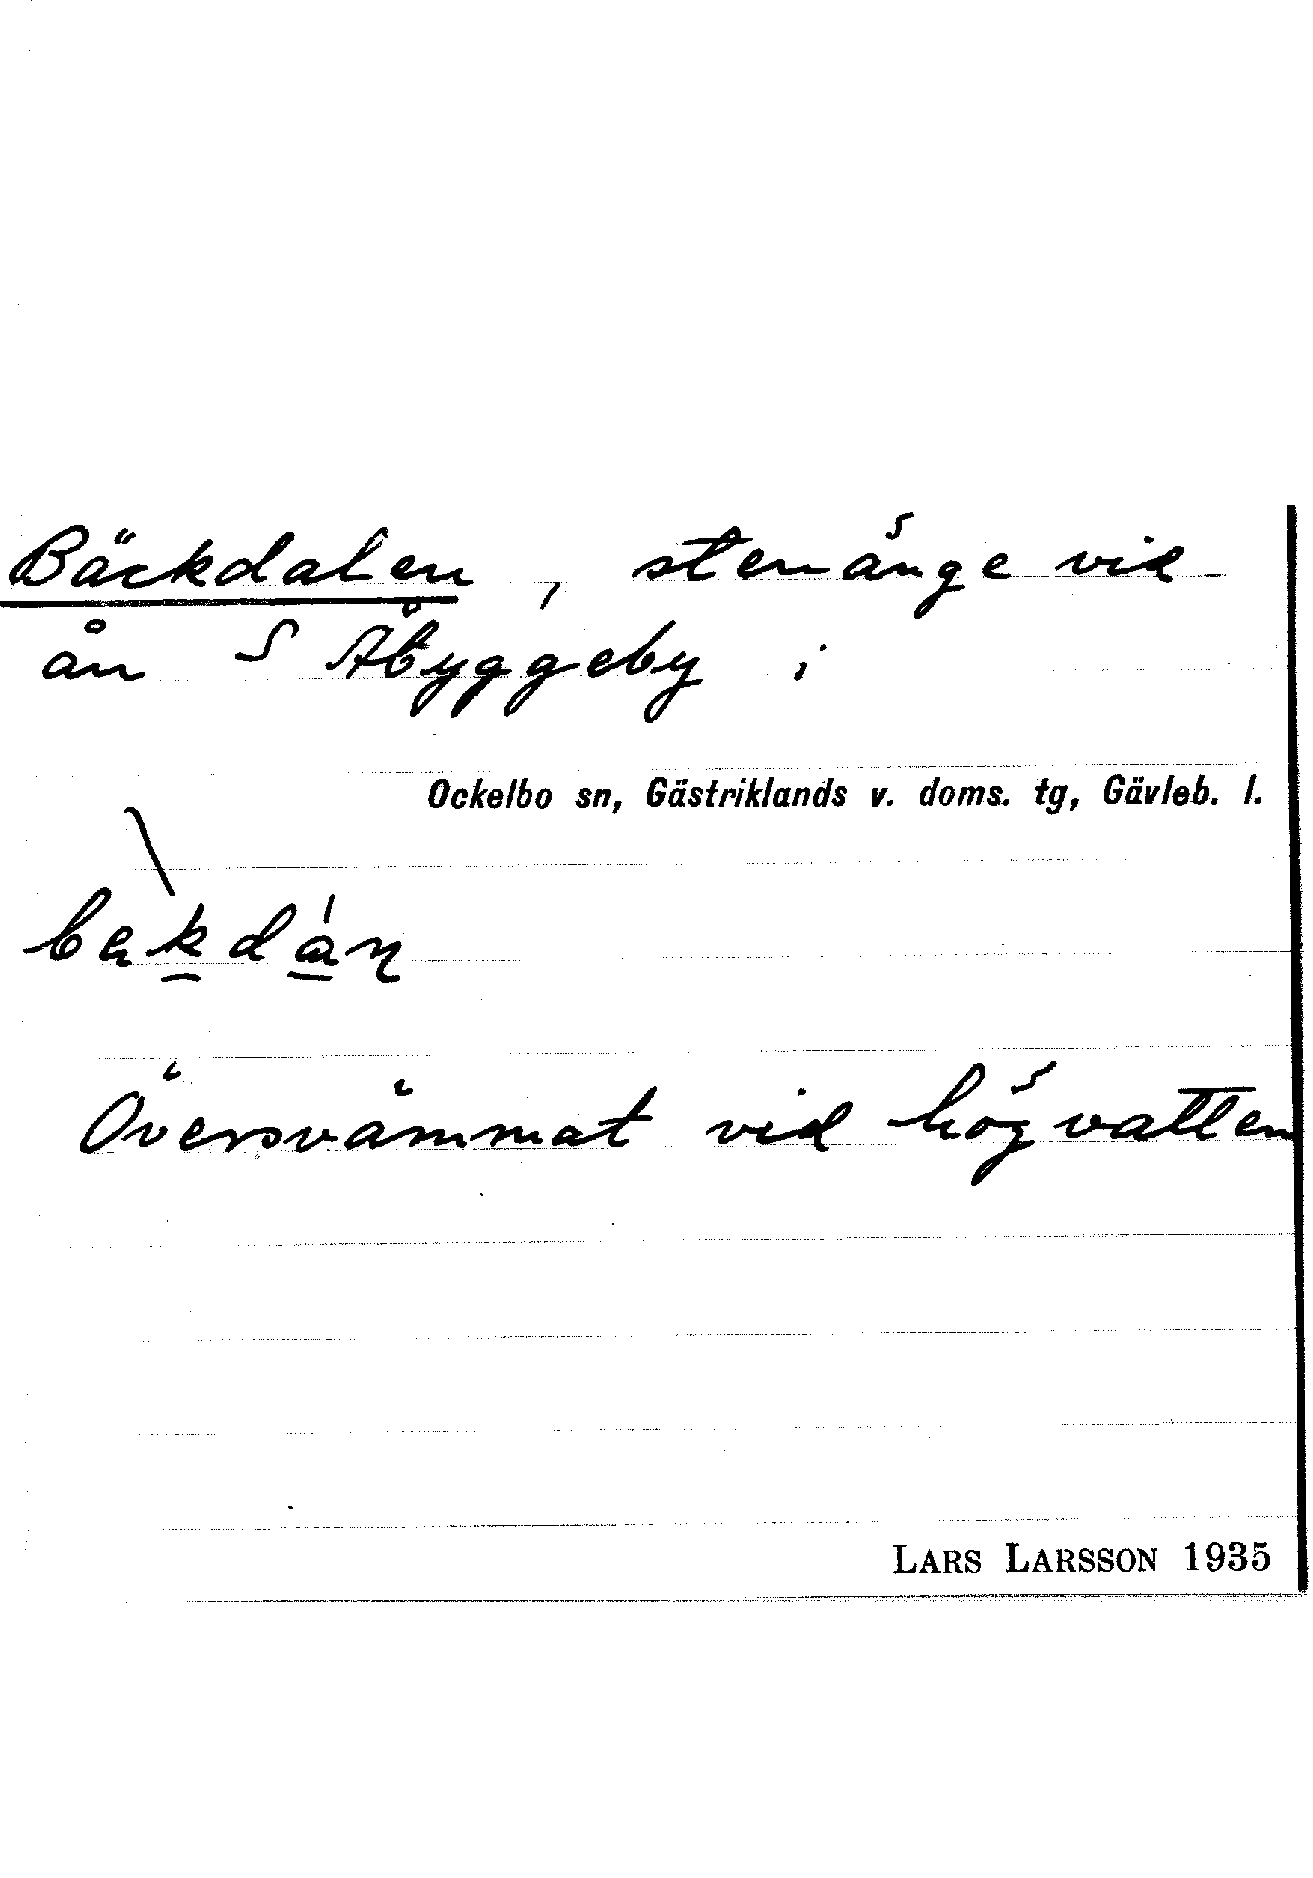 Bäckdalen, stenänge vid
ån S Åbyggeby i
Ockelbo sn, Gästriklands v. doms. tg, Gävleb. l.
Översvämmat vid högvatten
LARS LARSSON 1935